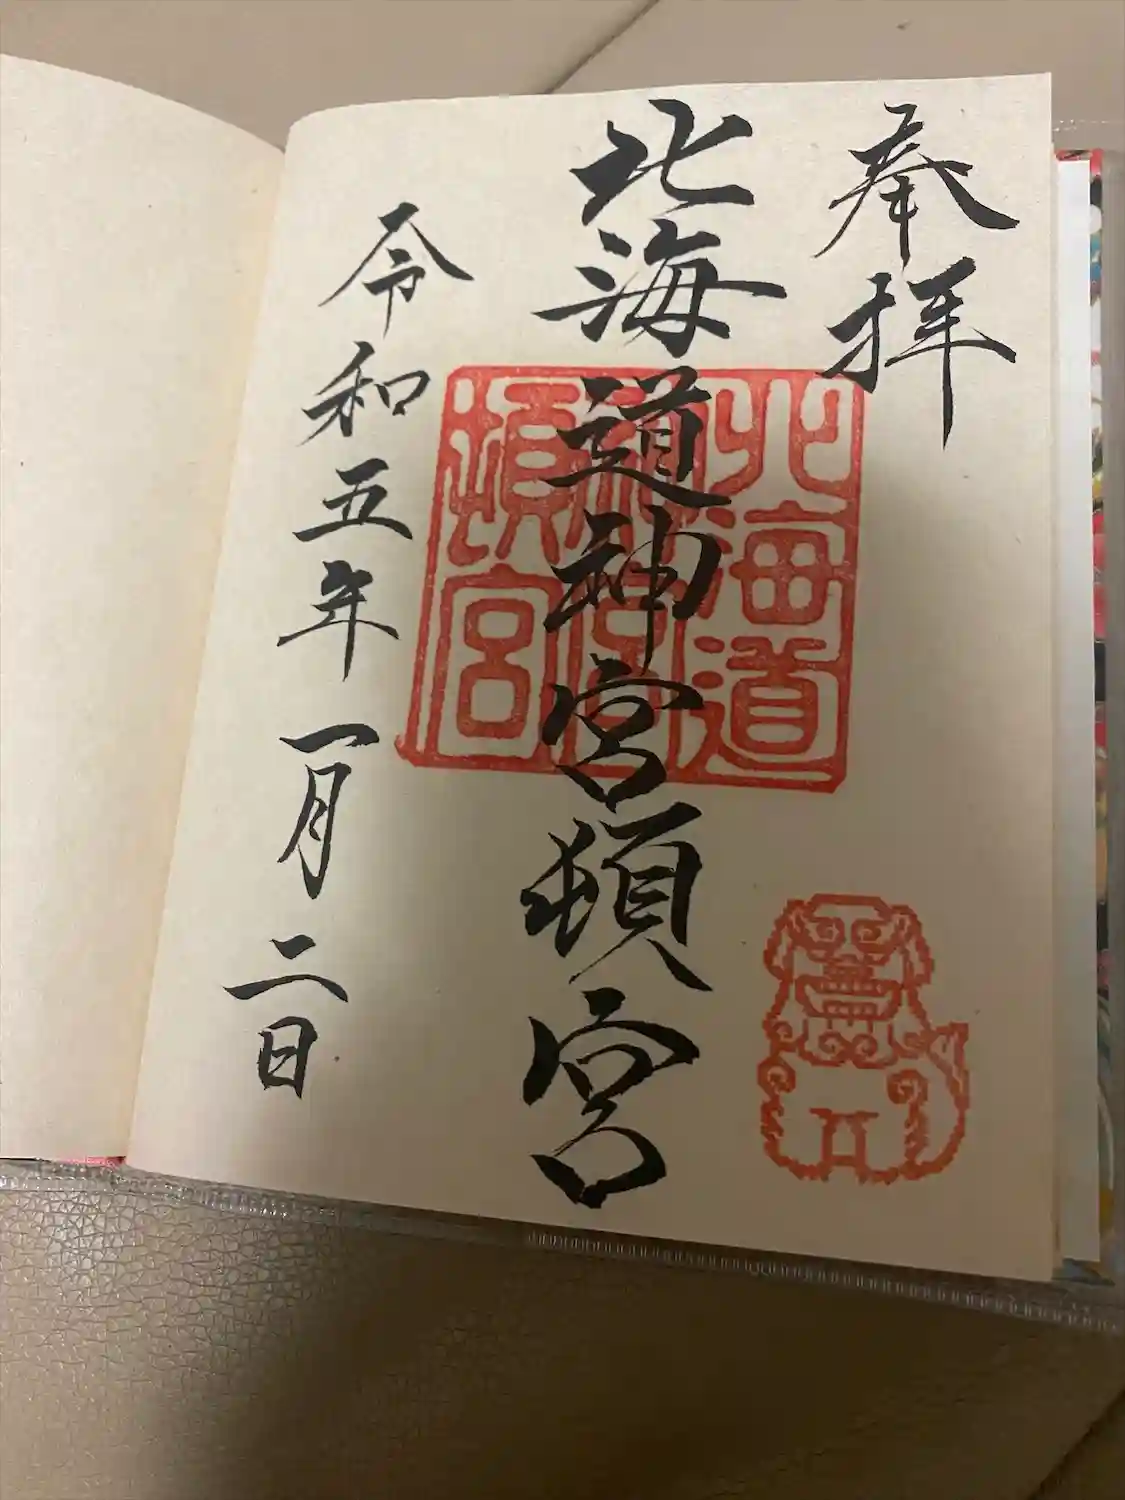 奉拝
北海道神宮頓宮
北海道
神宮
頓宮
令和五年一月二日